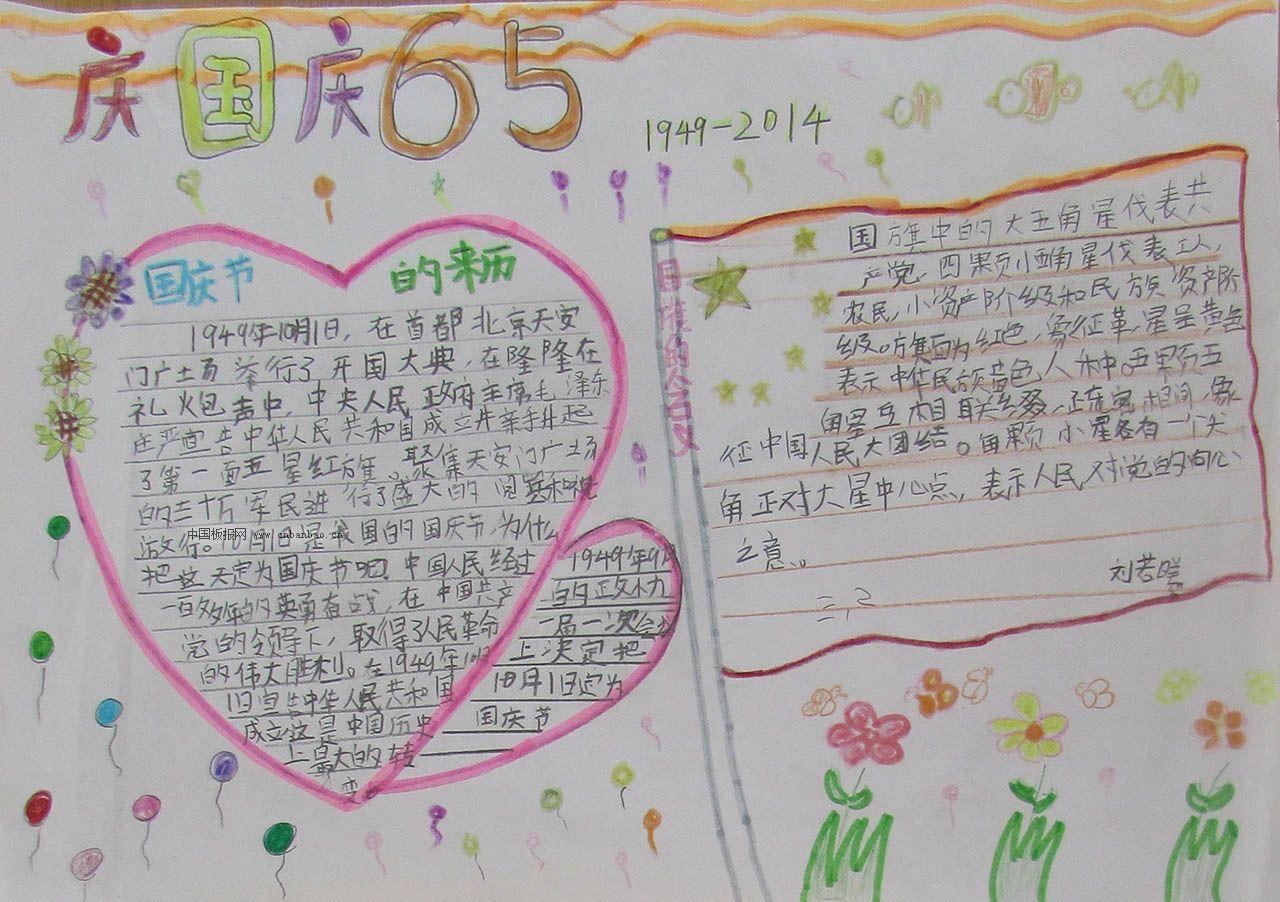 庆国庆65
1949-2014
国庆节 的来历
1949年10月1日,在首都北京天安
门广场举行了开国大典,在隆隆在
礼火包声中,中央人民政府主席毛泽东
庄严宣告中华人民共和国成立并亲手升起
了第一面五星红旗。聚集天安门广场
的三十万军民进行了盛大的阅兵和祝
游行。10月1日是我国的国庆节,为什么
把这天定为国庆节吧?中国人民经过
一百多年的英勇有战,在中国共产
党的领导下,取得了人民革命
的伟大胜利。在1949年10月
1日宣告中华人民共和国
成立这是中国历史
上最大的转
变。
1949年9月
的政
一届一次会
上决定把
10月1日定为
国庆节
国旗的含义
国旗中的大五角星代表共
产党、四颗小五角星代表工人,
农民,小资产阶级和民族资产阶
级。旗面为红色,象征革,星呈黄色
表示中华民族黄色人种。五颗五
角星互相联缀、疏密相间,象
征中国人民大团结。每颗小星各有一个尖
角正对大星中心点,表示人民对党的向心
之意。
刘若曦
三,2
中国板报网 www.cnbanbao.cn